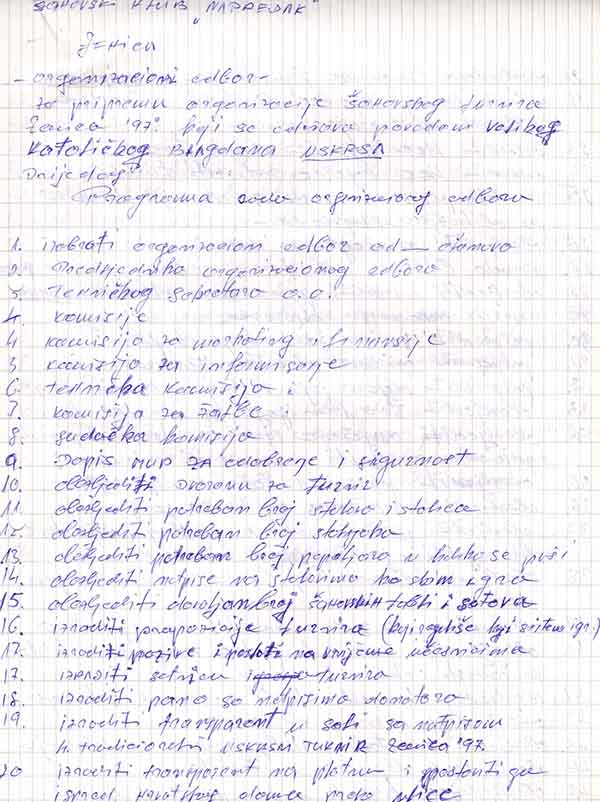 ŠAHOVSKI KLUB "NAPREDAK"
Zenica
- organizacioni odbor -
za pripremu organizacije šahovskog turnira
Zenica '97. koji se održava povodom velikog
katoličkog Blagdana USKRSA
Prijedlog
Programa rada organizacionog odbora
1. izabrati organizacioni odbor od __ članova
2. Predsjednika organizacionog odbora
3. Tehničkog sekretara o.o.
4. komisije
4 komisija za marketing i finansije
5 komisija za informisanje
6. tehnička komisija i
7. komisija za žalbe
8. sudačka komisija
9. Dopis MUP ZA odobrenje i sigurnost
10. obezbjediti Dvoranu za turnir
11. obezbjediti potreban broj stolova i stolica
12. obezbjediti potreban broj stolnjaka
13. obezbjediti potreban broj pepeljara u se puši
14. obezbjediti natpise na stolovima igra
15. obezbjediti dovoljan broj šahovskih tabli i satova
16. izraditi propozicije turnira (koji reguliše koji sistem igr.)
17. izraditi pozive i poslati na vrijeme učesnicima
17. izraditi satnicu turnira
18. izraditi pano sa natpisima donatora
19. izraditi transparent u sali sa natpisom
4. tradicionalni USKRSNI TURNIR Zenica '97.
20 izraditi transparent na platnu i postaviti ga
ispred Hrvatskog doma preko ulice